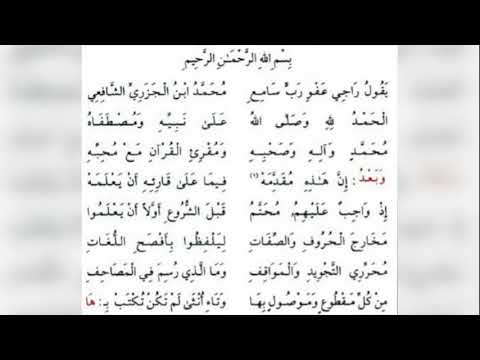 بِسْمِ اللهِ الرَّحْمَـٰنِ الرَّحِيمِ
يَقُولُ رَاجِي عَفْوِ رَبٍّ سَامِعِ مُحَمَّدُ ابْنُ الْجَزَرِيِّ الشَّافِعِي
الْحَمْدُ لِلَّهِ وَصَلَّى اللهُ عَلَىٰ نَبِيِّهِ وَمُصْطَفَاهُ
مُحَمَّدٍ وَآلِهِ وَصَحْبِهِ وَمُقْرِئِ الْقُرْآنِ مَعْ مُحِبِّهِ
وَبَعْدُ : إِنَّ هَـٰذِهِ مُقَدِّمَهْ (١) فِيمَا عَلَىٰ قَارِئِهِ أَنْ يَعْلَمَهْ
إِذْ وَاجِبٌ عَلَيْهِمُ مُحَتَّمُ قَبْلَ الشُّرُوعِ أَوَّلاً أَنْ يَعْلَمُوا
مَخَارِجَ الْحُرُوفِ وَالصِّفَاتِ لِيَلْفِظُوا بِأَفْصَحِ اللُّغَاتِ
مُحَرِّرِي التَّجْوِيدِ وَالْمَوَاقِفِ وَمَا الَّذِي رُسِمَ فِي الْمَصَاحِفِ
مِنْ كُلِّ مَقْطُوعٍ وَمَوْصُولٍ بِهَا وَتَاءِ أُنْثَى لَمْ تَكُنْ تُكْتَبْ بِـ : هَا